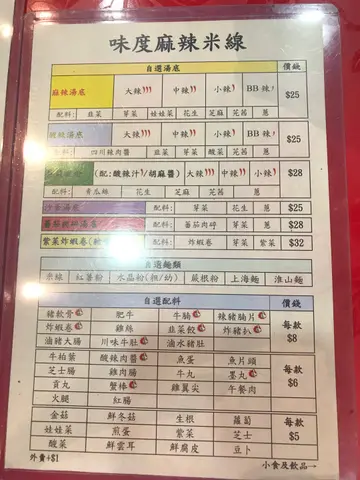 味度麻辣米線
自選湯底 價錢
麻辣湯底 大辣 中辣 小辣 BB辣 $25
配料: 韭菜 芽菜 娃娃菜 花生 芝麻 花茜 蔥
湯底 大辣 中辣 小辣 BB辣 $25
配料: 四川辣肉醬 韭菜 芽菜 酸菜 花茜 蔥
(配:酸辣汁/胡麻醬) 大辣 中辣 小辣 $28
配料: 青瓜絲 花生 芝麻 花茜 蔥
沙嗲湯底 配料: 芽菜 花生 蔥 $25
蕃茄湯底 配料: 蕃茄肉碎 芽菜 蔥 $28
紫菜炸蝦卷 配料: 炸蝦卷 芽菜 紫菜 $32
自選麵類
米線 紅薯粉 水晶粉(粗/幼) 蕨根粉 上海麵 淮山麵
自選配料 價錢
豬軟骨 肥牛 牛腩 辣豬腩片 每款 $8
炸蝦卷 雞絲 韭菜餃 炸豬扒
滷豬大腸 川味牛肚 滷水豬肚
牛柏葉 酸辣肉醬 魚蛋 魚片頭 每款 $6
芝士腸 雞肉腸 牛丸 墨丸
貢丸 蟹棒 雞翼尖 午餐肉
火腿 紅腸
金菇 鮮冬菇 生根 蘿蔔 每款 $5
娃娃菜 煎蛋 紫菜 芝士
酸菜 鮮雲耳 鮮腐皮 豆卜
外賣+$1 小食及飲品→